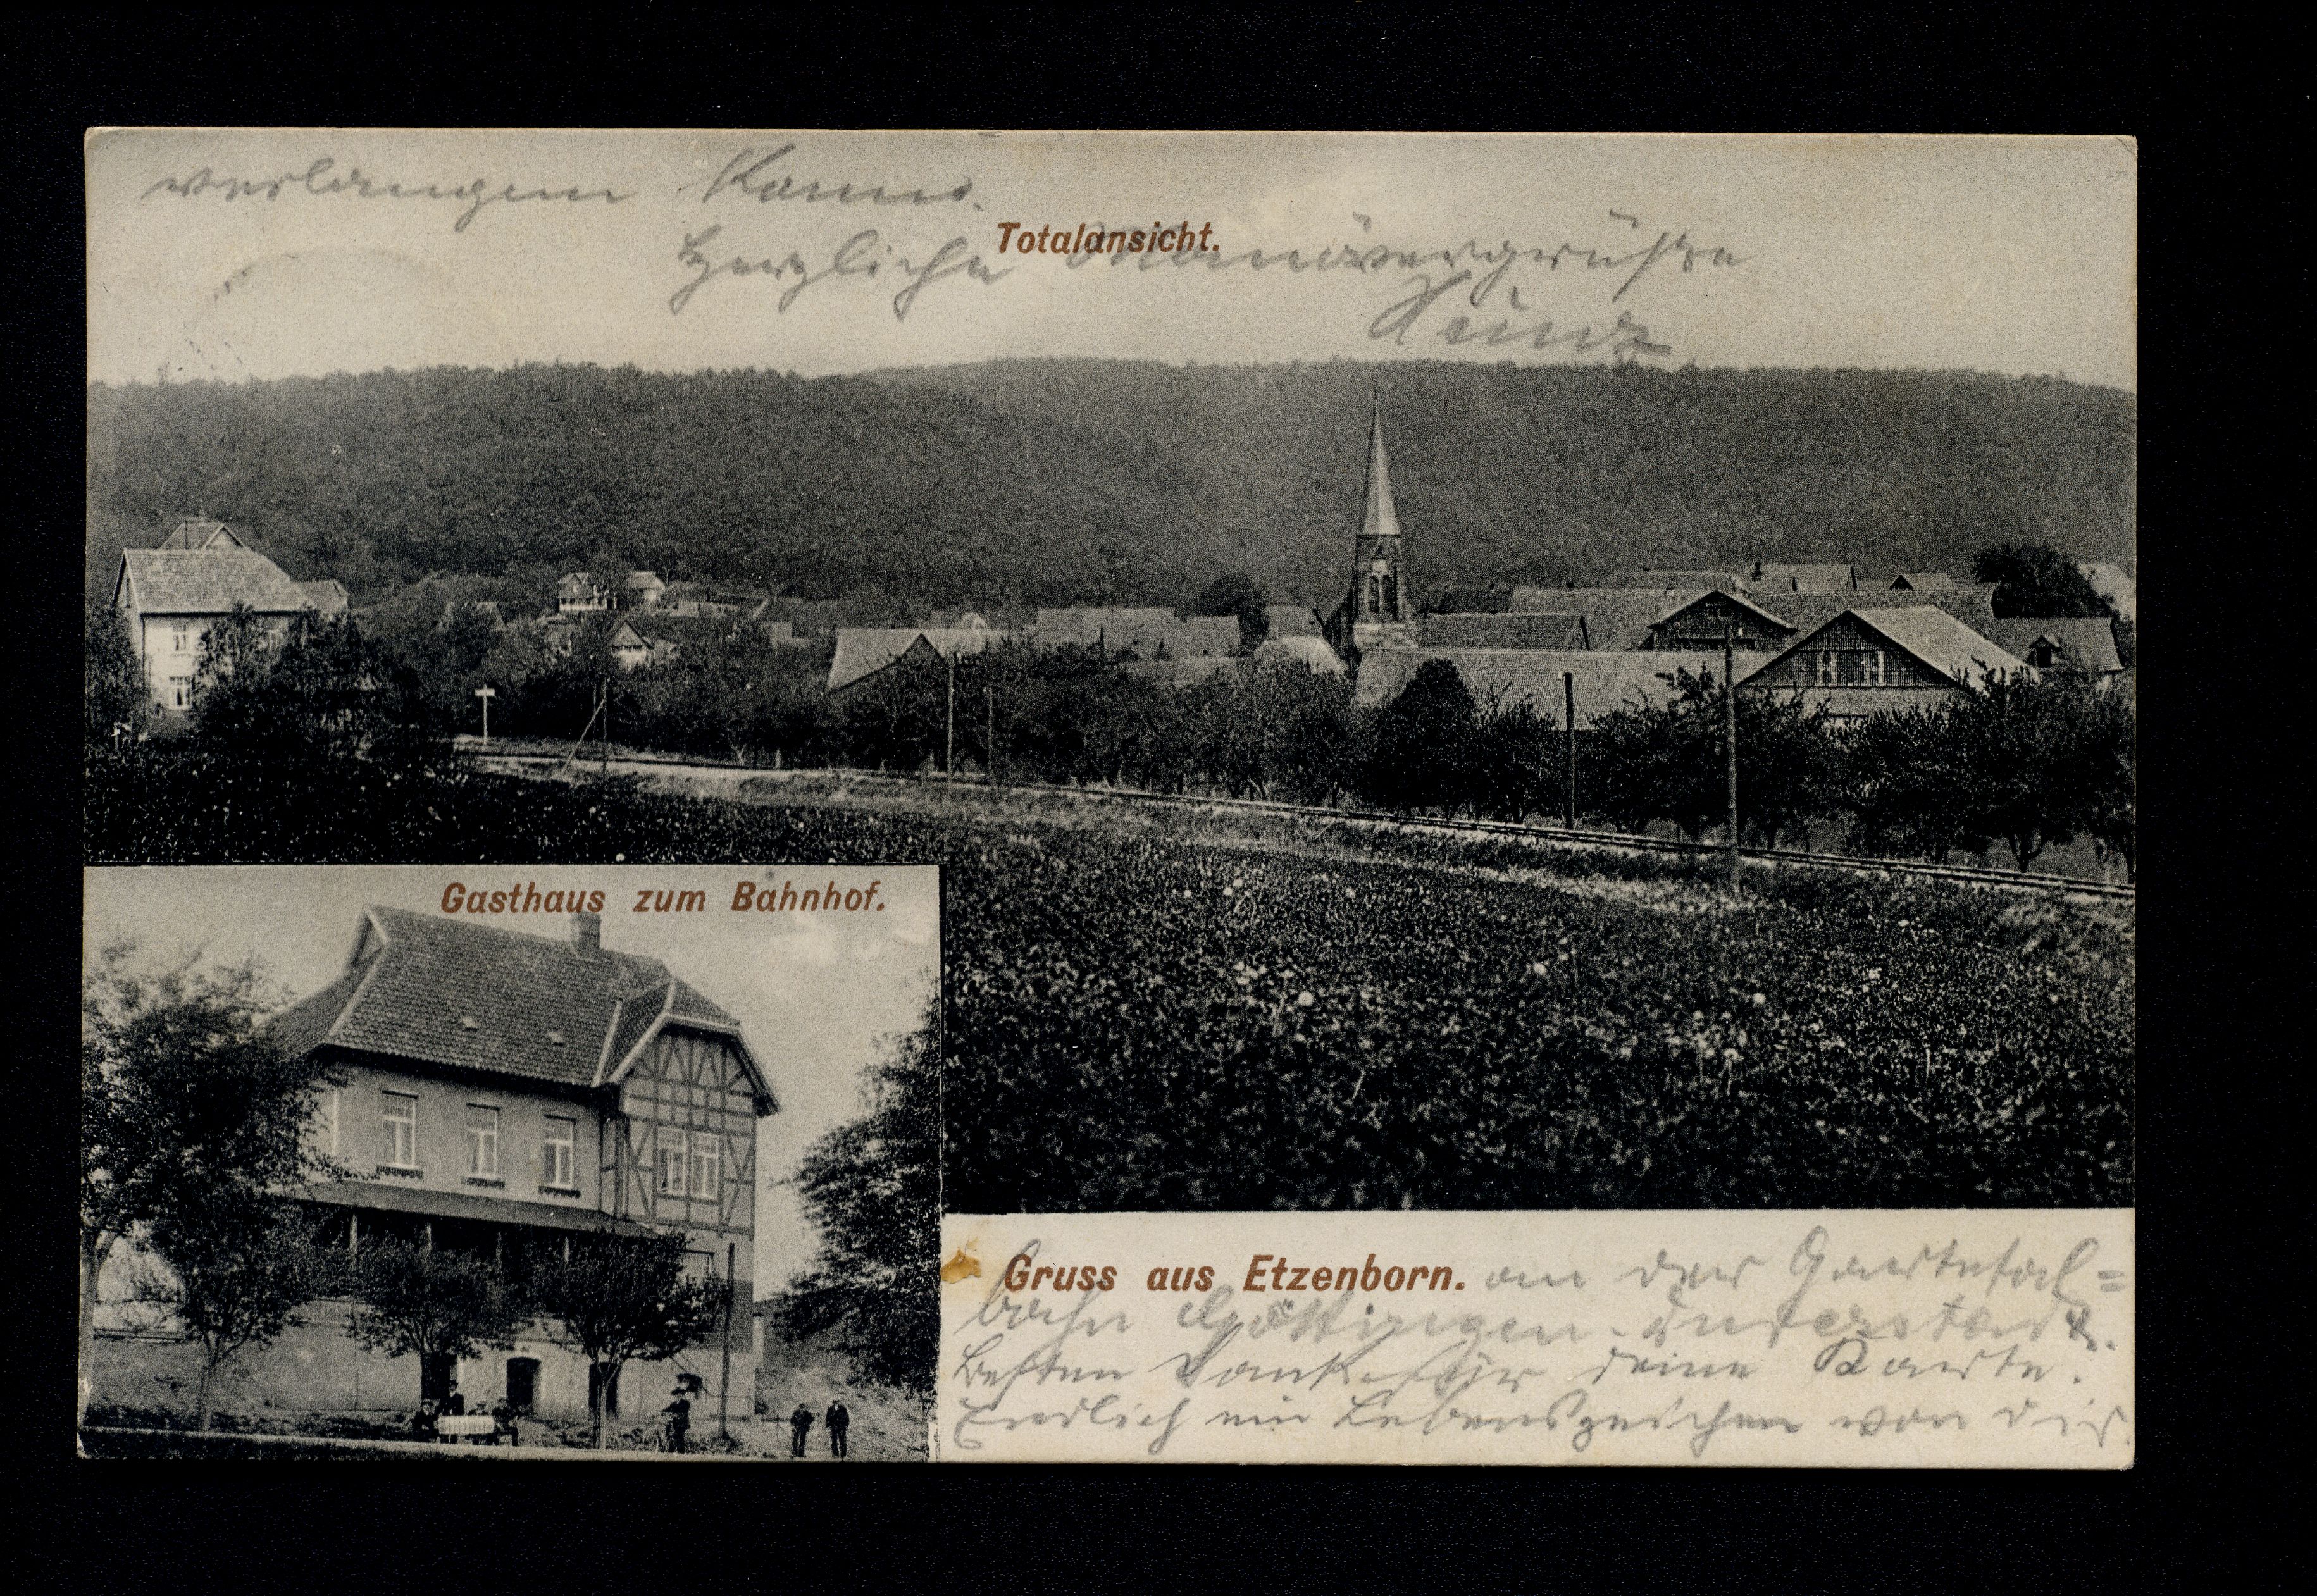 verlangen kann.
Totalansicht.
Herzliche Manövergrüße
Heinz
Gasthaus zum Bahnhof.
Gruss aus Etzenborn. an der Gartetal=
bahn Göttingen-Duderstadt.
Besten Dank für deine Karte.
Endlich ein Lebenszeichen von dir.